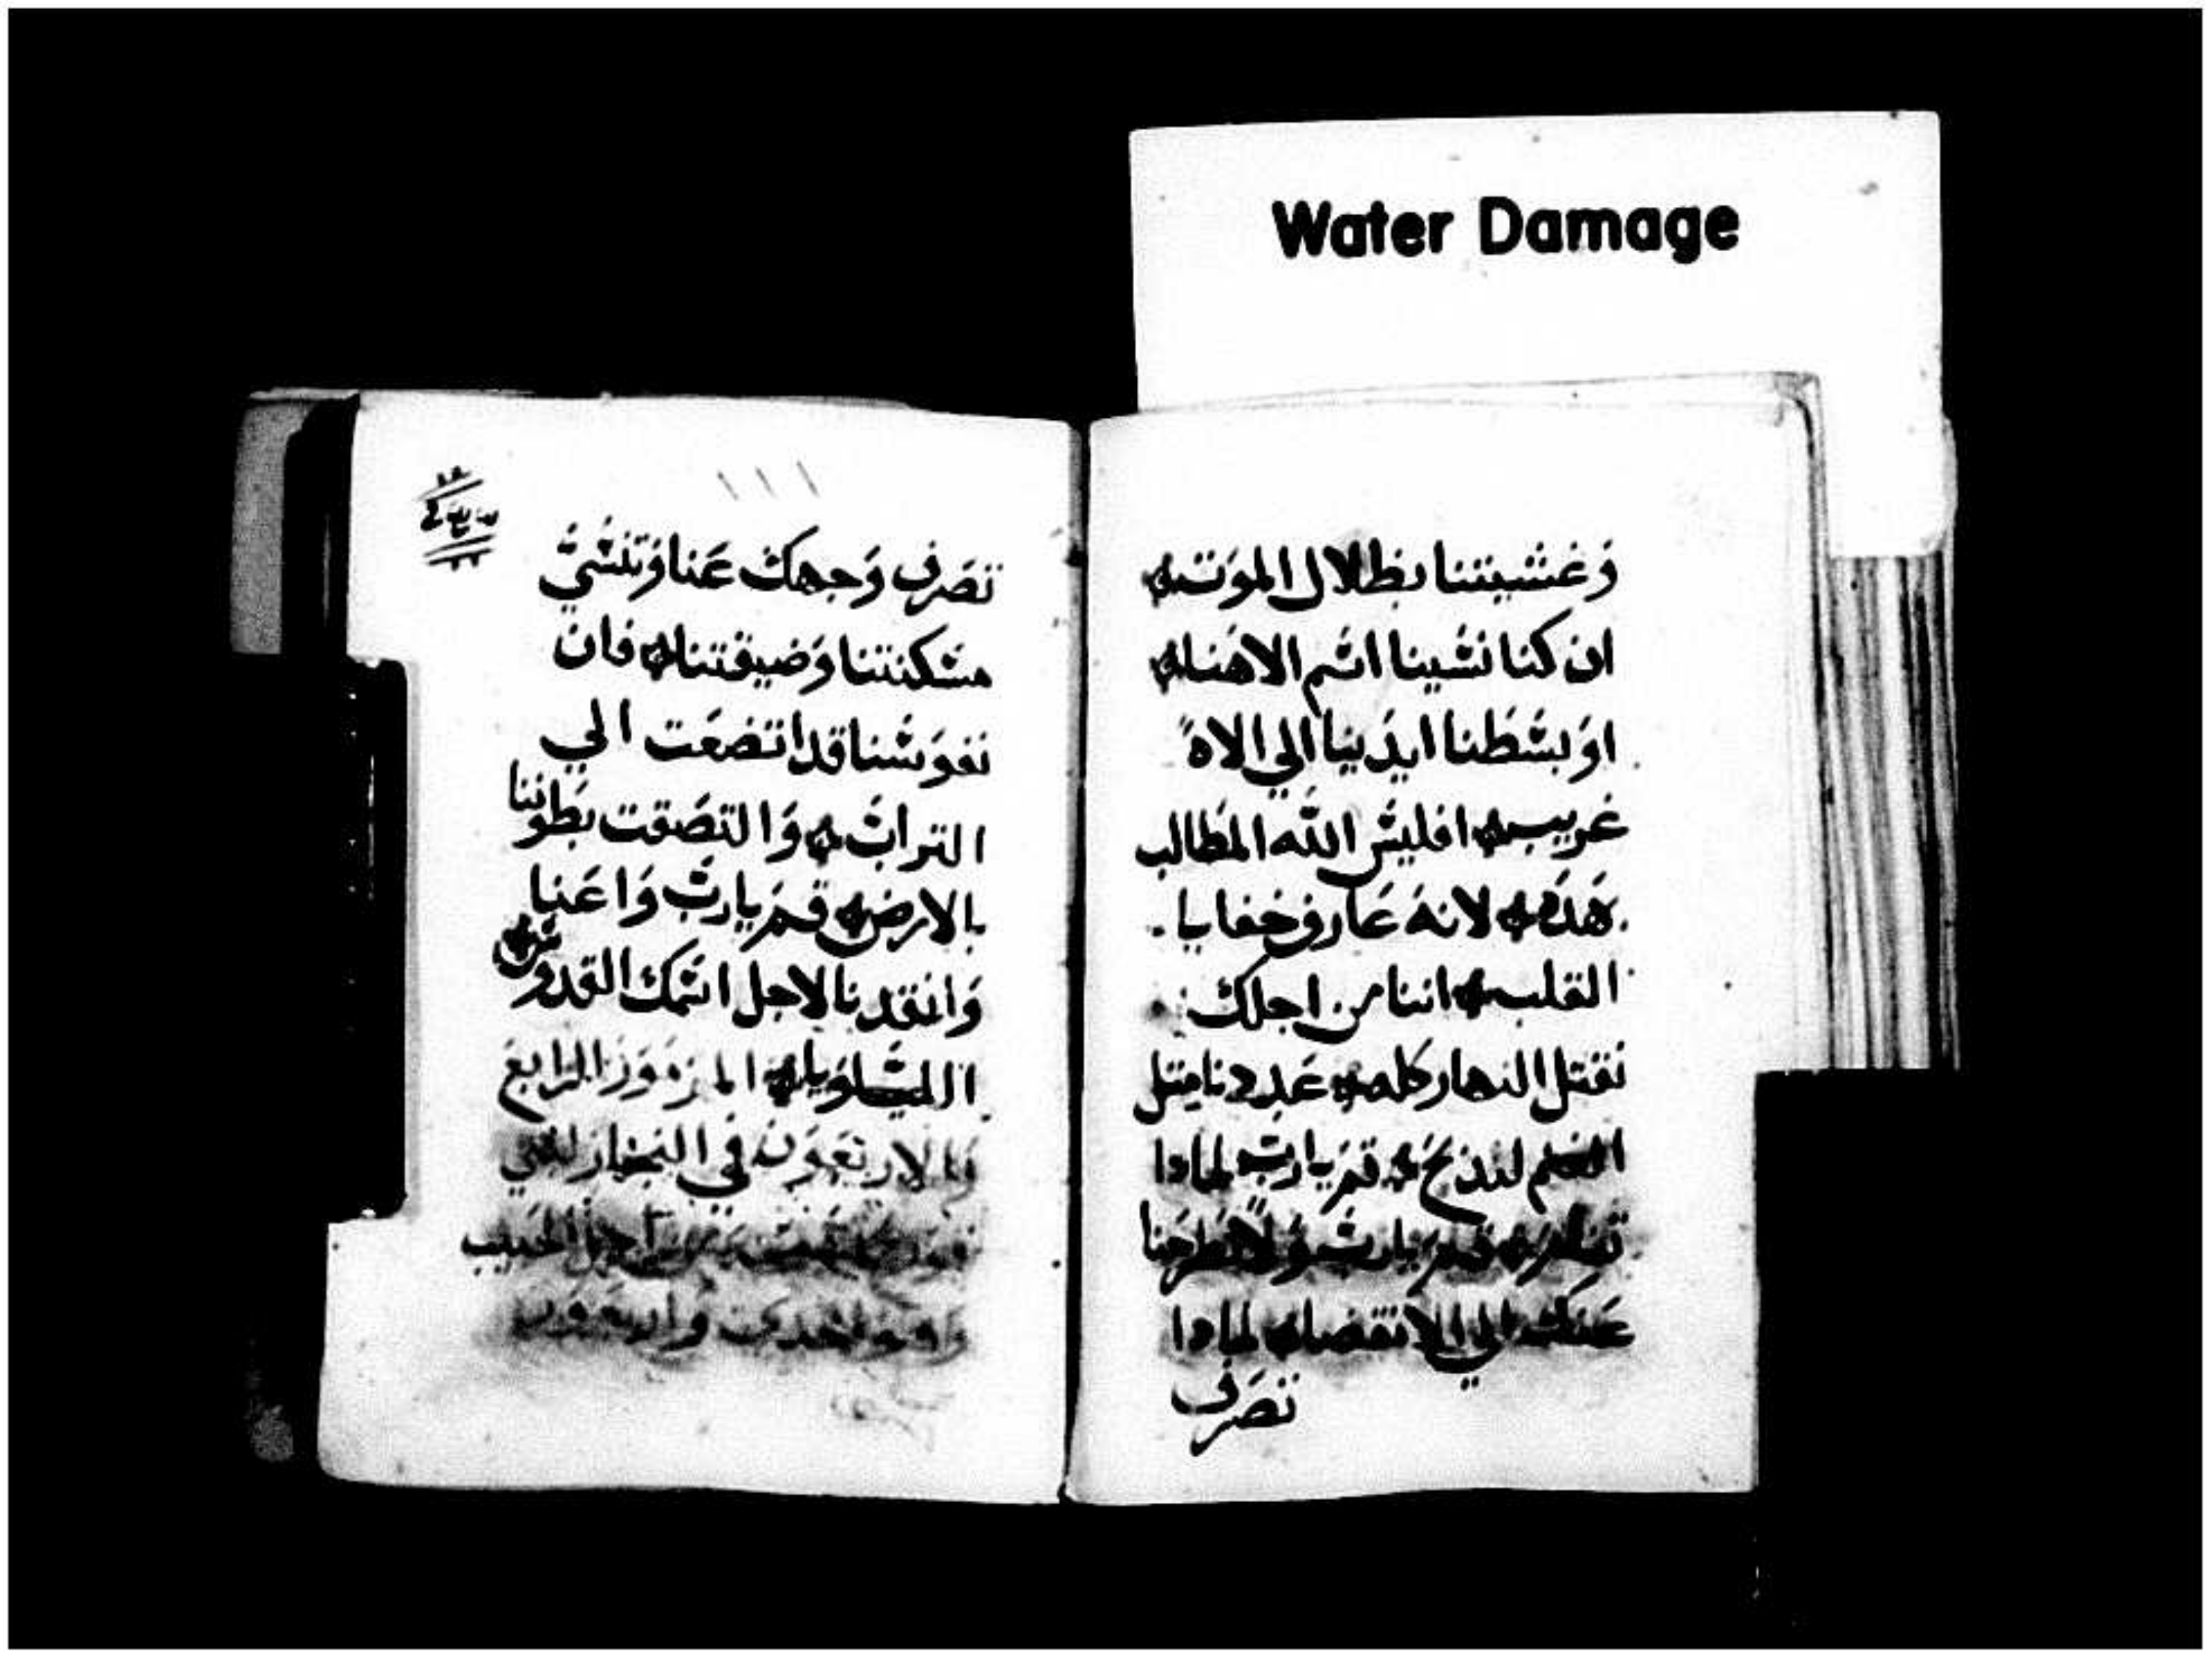 Water Damage
وَغشيتنا بظلال الموَت
ان كنا نسَينا اسَم الاهنا
اوَبسَطنا ايدَينا الي الاه
غريب افليسَ الله المطالب
هَدَه لانهَ عَارف خفايا
القلب اننا من اجلك
نقتل النهار كله عَددنا متل
الغنم لندبَح قمَ يا ربَ لمادا
تنام قمَ يا ربَ وَلا تطرحَنا
عَنك الي الانقضا لمادا
تصَرف
تصَرف وَجهك عَنا وَتنسَيَ
مسَكنتنا وَضيقتنا فان
نفوَسَنا قد اتضعَت الي
الترابَ وَالتصَقت بطوَننا
بالارض قمَ يا ربَ وَاعَنا
وَانقدنا لاجل اسَمك القدوس
الليلويا المزموَر الرابعَ
وَالاربعَوَن في
من اجل الحبيب